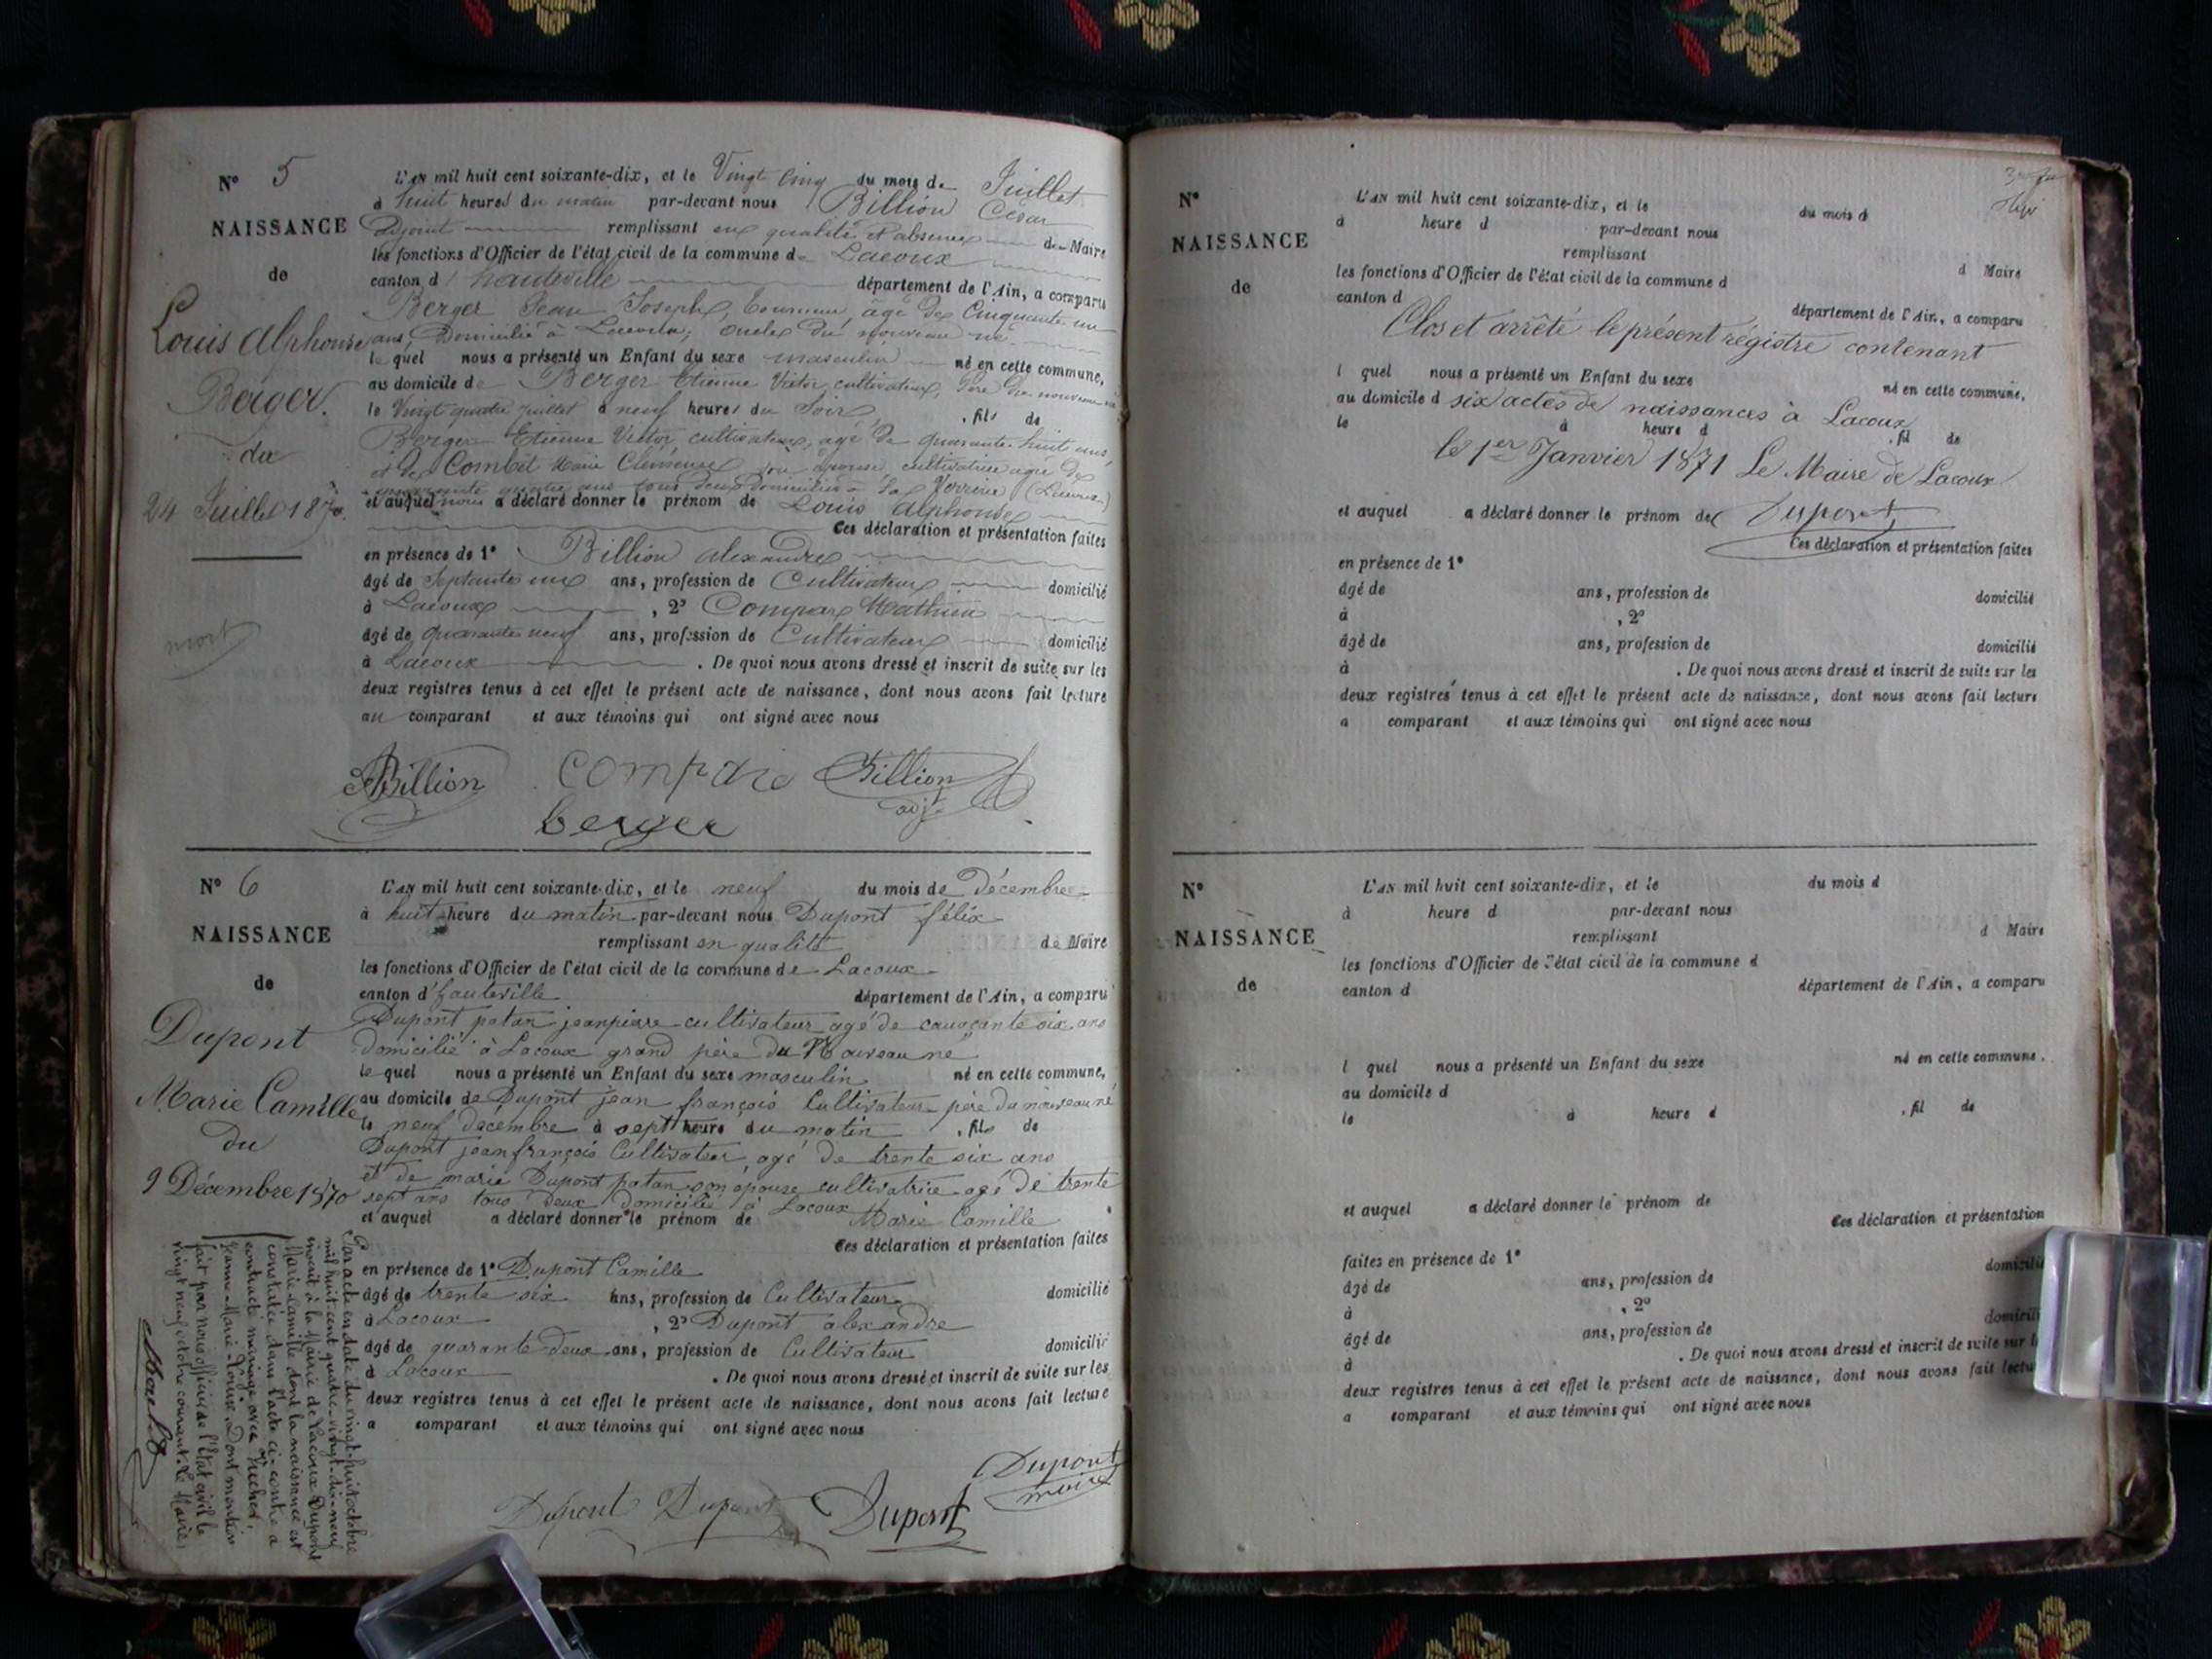 N° 5
NAISSANCE
de
Louis Alphonse
Berger.
du
24 Juillet 1870.
L'AN mil huit cent soixante-dix, et le Vingt Cinq du mois de Juillet
à huit heures du matin par-devant nous Billion César
Adjoint remplissant en qualité et absence du Maire
les fonctions d'Officier de l'état civil de la commune de Lacoux
canton d'hauteville département de l'Ain, a comparu
Berger Jean Joseph, âgé de Cinquante un
ans, Domicilié à oncle du nouveau né
lequel nous a présenté un Enfant du sexe masculin né en cette commune,
au domicile de Berger Etienne Victor cultivateur, Père du nouveau né
le Vingt quatre juillet à neuf heures du Soir, fils de
Berger Etienne Victor, cultivateur, âgé de quarante-huit ans,
et de Combet Marie Clémence son épouse, cultivatrice agée de
quarante ans tous deux domiciliés à la
et auquel nous a déclaré donner le prénom de Louis Alphonse
Ces déclaration et présentation faites
en présence de 1° Billion alexandre
âgé de Septante un ans, profession de Cultivateur domicilié
à Lacoux, 2° Compare Mathieu
âgé de quarante neuf ans, profession de Cultivateur domicilié
à Lacoux. De quoi nous avons dressé et inscrit de suite sur les
deux registres tenus à cet effet le présent acte de naissance, dont nous avons fait lecture
au comparant et aux témoins qui ont signé avec nous
ABillion Compare Billion
adjt
berger
N° 6
NAISSANCE
de
Dupont
Marie Camille
du
9 Décembre 1870
L'AN mil huit cent soixante-dix, et le neuf du mois de Décembre
à huit heure du matin par-devant nous Dupont félix
remplissant en qualité de Maire
les fonctions d'Officier de l'état civil de la commune de Lacoux
canton d'hauteville département de l'Ain, a comparu
Dupont patan jeanpierre cultivateur agé de ans
domicilié à Lacoux grand père du Nouveau né
lequel nous a présenté un Enfant du sexe masculin né en cette commune,
au domicile de Dupont jean françois Cultivateur père du nouveau né
le neuf décembre à sept heure du matin, fils de
Dupont jean françois Cultivateur agé de trente six ans
et de marie Dupont patan son épouse cultivatrice agé de trente
sept ans tous deux domicilié à Lacoux
et auquel a déclaré donner le prénom de Marie Camille
Ces déclaration et présentation faites
en présence de 1° Dupont Camille
âgé de trente six ans, profession de Cultivateur domicilié
à Lacoux, 2° Dupont alexandre
âgé de quarante deux ans, profession de Cultivateur domicilié
à Lacoux. De quoi nous avons dressé et inscrit de suite sur les
deux registres tenus à cet effet le présent acte de naissance, dont nous avons fait lecture
a comparant et aux témoins qui ont signé avec nous
Dupont
maire
Dupont Dupont Dupont
Par acte en date du vingt-huit octobre
mil huit cent quatre-vingt-dix-neuf
inscrit à la Mairie de Lacoux Dupont
Marie Camille dont la naissance est
constatée dans l'acte ci-contre a
contracté mariage avec
Jeanne-Marie Louise. Dont mention
fait par nous officier de l'Etat civil le
vingt neuf octobre courant. Le Maire:
N°
NAISSANCE
de
L'AN mil huit cent soixante-dix, et le du mois d
à heure d par-devant nous
remplissant d Maire
les fonctions d'Officier de l'état civil de la commune d
canton d département de l'Ain, a comparu
Clos et arrêté le présent régistre contenant
l quel nous a présenté un Enfant du sexe né en cette commune,
au domicile d six actes de naissances à Lacoux
le à heure d, fil de
le 1er Janvier 1871 Le Maire de Lacoux
et auquel a déclaré donner le prénom de Dupont
Ces déclaration et présentation faites
en présence de 1°
âgé de ans, profession de domicilié
à , 2°
âgé de ans, profession de domicilié
à . De quoi nous avons dressé et inscrit de suite sur les
deux registres tenus à cet effet le présent acte de naissance, dont nous avons fait lecture
a comparant et aux témoins qui ont signé avec nous
N°
NAISSANCE
de
L'AN mil huit cent soixante-dix, et le du mois d
à heure d par-devant nous
remplissant d Maire
les fonctions d'Officier de l'état civil de la commune d
canton d département de l'Ain, a comparu
l quel nous a présenté un Enfant du sexe né en cette commune,
au domicile d
le à heure d, fil de
et auquel a déclaré donner le prénom de
Ces déclaration et présentation
faites en présence de 1° domicilié
âgé de ans, profession de
à , 2° domicili
âgé de ans, profession de
à . De quoi nous avons dressé et inscrit de suite sur l
deux registres tenus à cet effet le présent acte de naissance, dont nous avons fait lectu
a comparant et aux témoins qui ont signé avec nous